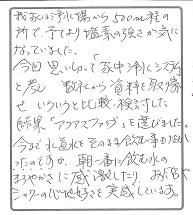 我家は浄水場から500m程の
所で、予てより塩素の強さが気に
なっていました。
今回思い切って「家中浄水システム
を考え 数社から資料を取寄
せいろいろと比較・検討した
結果「アクアスファップ」を選びました。
今まで水道水をそのまま飲む事もなか
ったのですが、朝一番に飲む水の
まろやかさに感激したり お風呂や
シャワーの心地好さを実感しています。